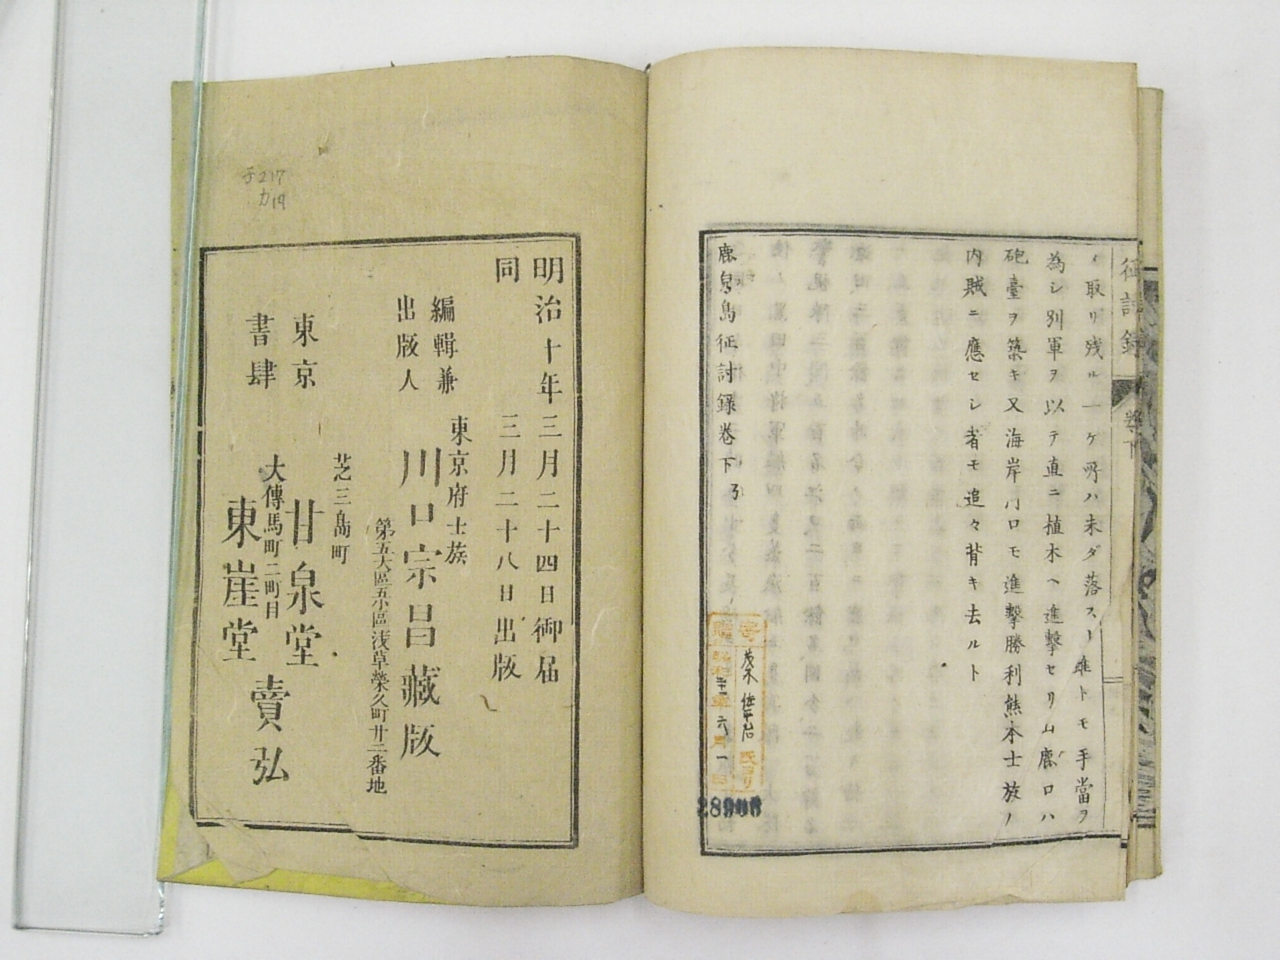 征討録
巻下
ヲ取リ残ル一ケ所ハ未ダ落ズト雖トモ手當ヲ
為シ別軍ヲ以テ直ニ植木ヘ進撃セリ山鹿口ハ
砲臺ヲ築キ又海岸川口モ進撃勝利熊本士族ノ
内賊ニ應セシ者モ追々背キ去ルト
鹿兒島征討録巻下
寄贈
茂木
氏ヨリ
六月一日
28908
子217
カ19
明治十年三月二十四日御届
同三月二十八日出版
編輯兼
出版人
東京府士族
川口宗昌藏版
第五大區五小區浅草榮久町廿二番地
東京
書肆
芝三島町
甘泉堂
大傳馬町二町目
東崖堂
賣弘